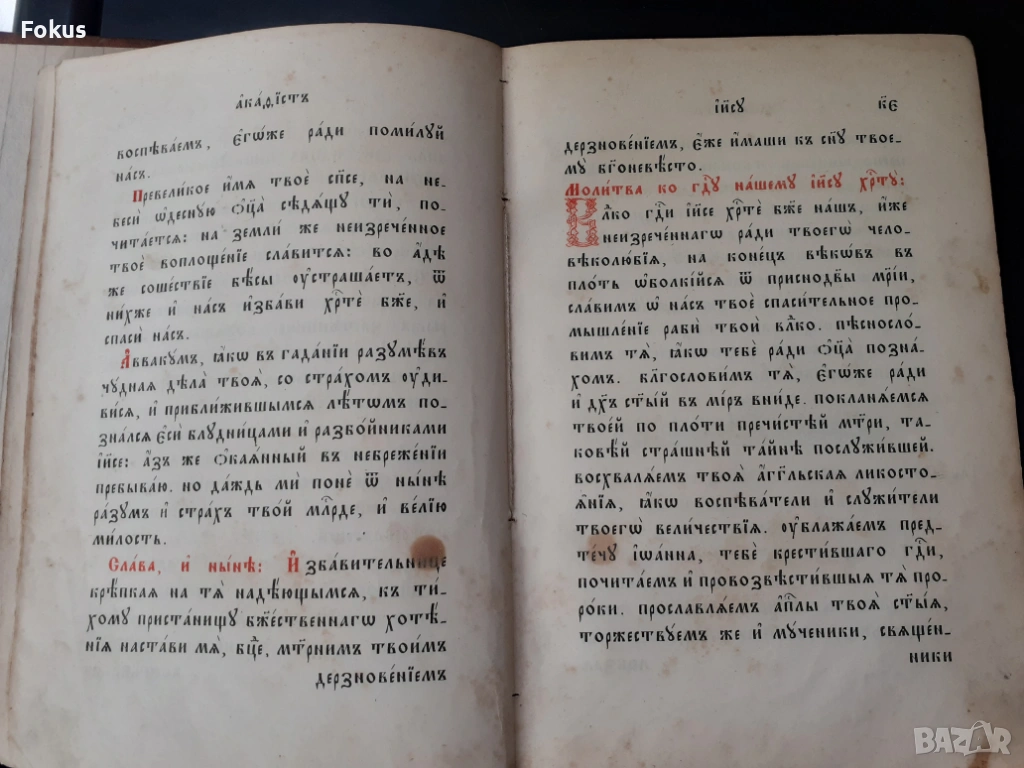 Fokus
а҆ка́ѳїстъ
воспѣва́емъ, є҆гѡ́же ра́ди поми́лꙋй
на́съ.
Превели́кое и҆́мѧ твоѐ сп҃се, на не-
бесѝ ѡ҆деснꙋ́ю ѻ҆ц҃а̀ сѣдѧ́щꙋ тѝ, по-
чита́етсѧ: на землѝ же неизрече́нное
твоѐ воплоще́нїе сла́витсѧ: во а҆́дѣ
же соше́ствїе бѣ́сы ᲂу҆страша́етъ, ѿ
ни́хже и҆ на́съ и҆зба́ви хрⷭ҇тѐ бж҃е, и҆
спасѝ на́съ.
А҆ввакꙋ́мъ, ꙗ҆́кѡ въ гада́нїи разꙋмѣ́въ
чꙋ̑днаѧ дѣла̀ твоѧ̑, со стра́хомъ ᲂу҆ди-
ви́сѧ, и҆ прибли́жившымсѧ лѣ́тѡмъ по-
зна́лсѧ є҆сѝ блꙋдни́цами и҆ разбо́йниками
і҆и҃се: а҆́зъ же ѻ҆каѧ́нный въ небреже́нїи
пребыва́ю. но да́ждь мѝ понѐ ѿ ны́нѣ
ра́зꙋмъ и҆ стра́хъ тво́й млⷭ҇рде, и҆ ве́лїю
ми́лость.
Сла́ва, и҆ ны́нѣ: И҆збави́тельнице
крѣ́пкаѧ на тѧ̀ надѣ́ющымсѧ, къ ти́-
хомꙋ приста́нищꙋ бж҃е́ственнагѡ хотѣ́-
нїѧ наста́ви мѧ̀, бц҃е, мт҃рнимъ твои́мъ
дерзнове́нїемъ
і҆и҃сꙋ
к҃є
дерзнове́нїемъ, є҆́же и҆́маши къ сн҃ꙋ твое-
мꙋ̀ бг҃оневѣ́сто.
Моли́тва ко гдⷭ҇ꙋ на́шемꙋ і҆и҃сꙋ хрⷭ҇тꙋ̀:
Влⷣко гдⷭ҇и і҆и҃се хрⷭ҇тѐ бж҃е на́шъ, и҆́же
неизрече́ннагѡ ра́ди твоегѡ̀ чело-
вѣколю́бїѧ, на коне́цъ вѣкѡ́въ въ
пло́ть ѡ҆болкі́йсѧ ѿ приснодв҃ы мр҃і́и,
сла́вимъ ѡ҆ на́съ твоѐ спаси́тельное про-
мышле́нїе рабѝ твоѝ влⷣко. пѣсносло́-
вимъ тѧ̀, ꙗ҆́кѡ тебє̀ ра́ди ѻ҆ц҃а̀ позна́-
хомъ. благослови́мъ тѧ̀, є҆гѡ́же ра́ди
и҆ дх҃ъ ст҃ы́й въ мі́ръ вни́де. покланѧ́емсѧ
твое́й по пло́ти пречи́стѣй мт҃ри, та-
ковѣ́й стра́шнѣй та́йнѣ послꙋжи́вшей.
восхвалѧ́емъ твоѧ̑ а҆́гг҃льскаѧ ликосто-
ѧ̑нїѧ, ꙗ҆́кѡ воспѣва́тели и҆ слꙋжи́тели
твоегѡ̀ вели́чествїѧ. ᲂу҆блажа́емъ пред-
те́чꙋ і҆ѡа́нна, тебѐ крести́вшаго гдⷭ҇и,
почита́емъ и҆ провозвѣсти́вшыѧ тѧ̀ про-
ро́ки. прославлѧ́емъ а҆пⷭ҇лы твоѧ̑ ст҃ы́ѧ,
торжествꙋ́емъ же и҆ мꙋ́ченики, свѧще́н-
ники
BAZAR